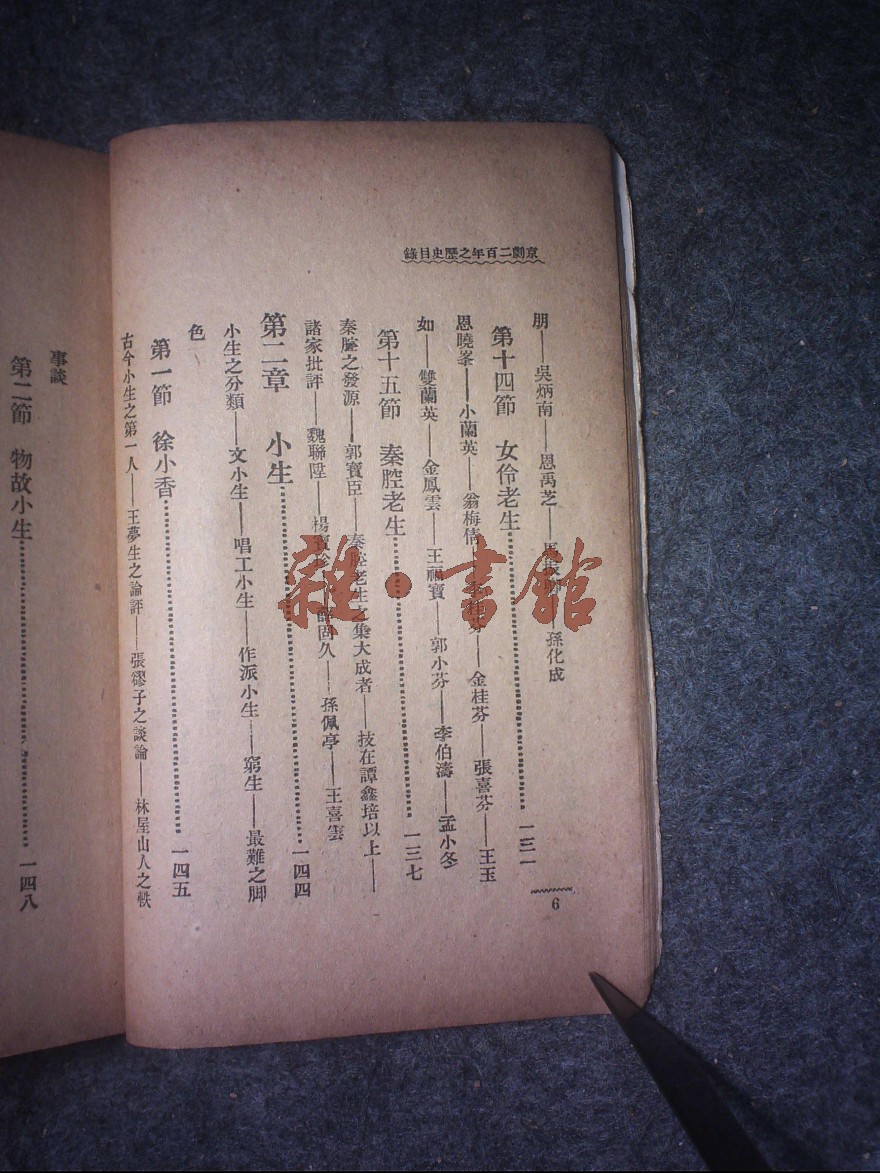 京劇二百年之歷史目錄
朋——吳炳南——恩禹芝——孫化成
第十四節 女伶老生…………一三一
恩曉峯——小蘭英——翁梅倩——金桂芬——張喜芬——王玉
如——雙蘭英——金鳳雲——王福寶——郭小芬——李伯濤——孟小冬
第十五節 秦腔老生…………一三七
秦腔之發源——郭寶臣——秦腔老生之集大成者——技在譚鑫培以上——
諸家批評——魏聯陞——楊寶——固久——孫佩亭——王喜雲
第二章 小生…………一四四
小生之分類——文小生——唱工小生——作派小生——窮生——最難之脚
色
第一節 徐小香…………一四五
古今小生之第一人——王夢生之論評——張繆子之談論——林屋山人之軼
6
事談
第二節 物故小生…………一四八
雜·書館